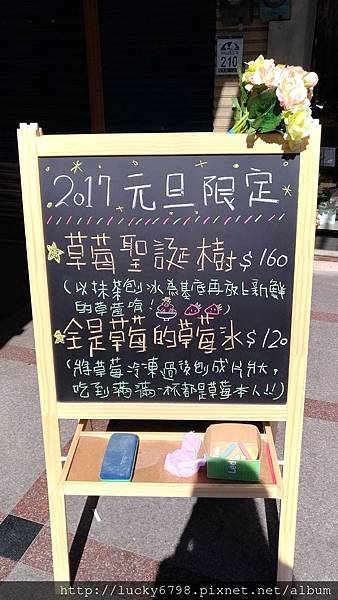 210
2017元旦限定
草莓聖誕樹$160
(以抹茶刨冰為基底再放上新鮮
的草莓唷!
全是草莓的草莓冰$120
(將草莓冷凍過後刨成片狀,
吃到滿滿一杯都是草莓本人!!)
http://lucky6798.pixnet.net/album